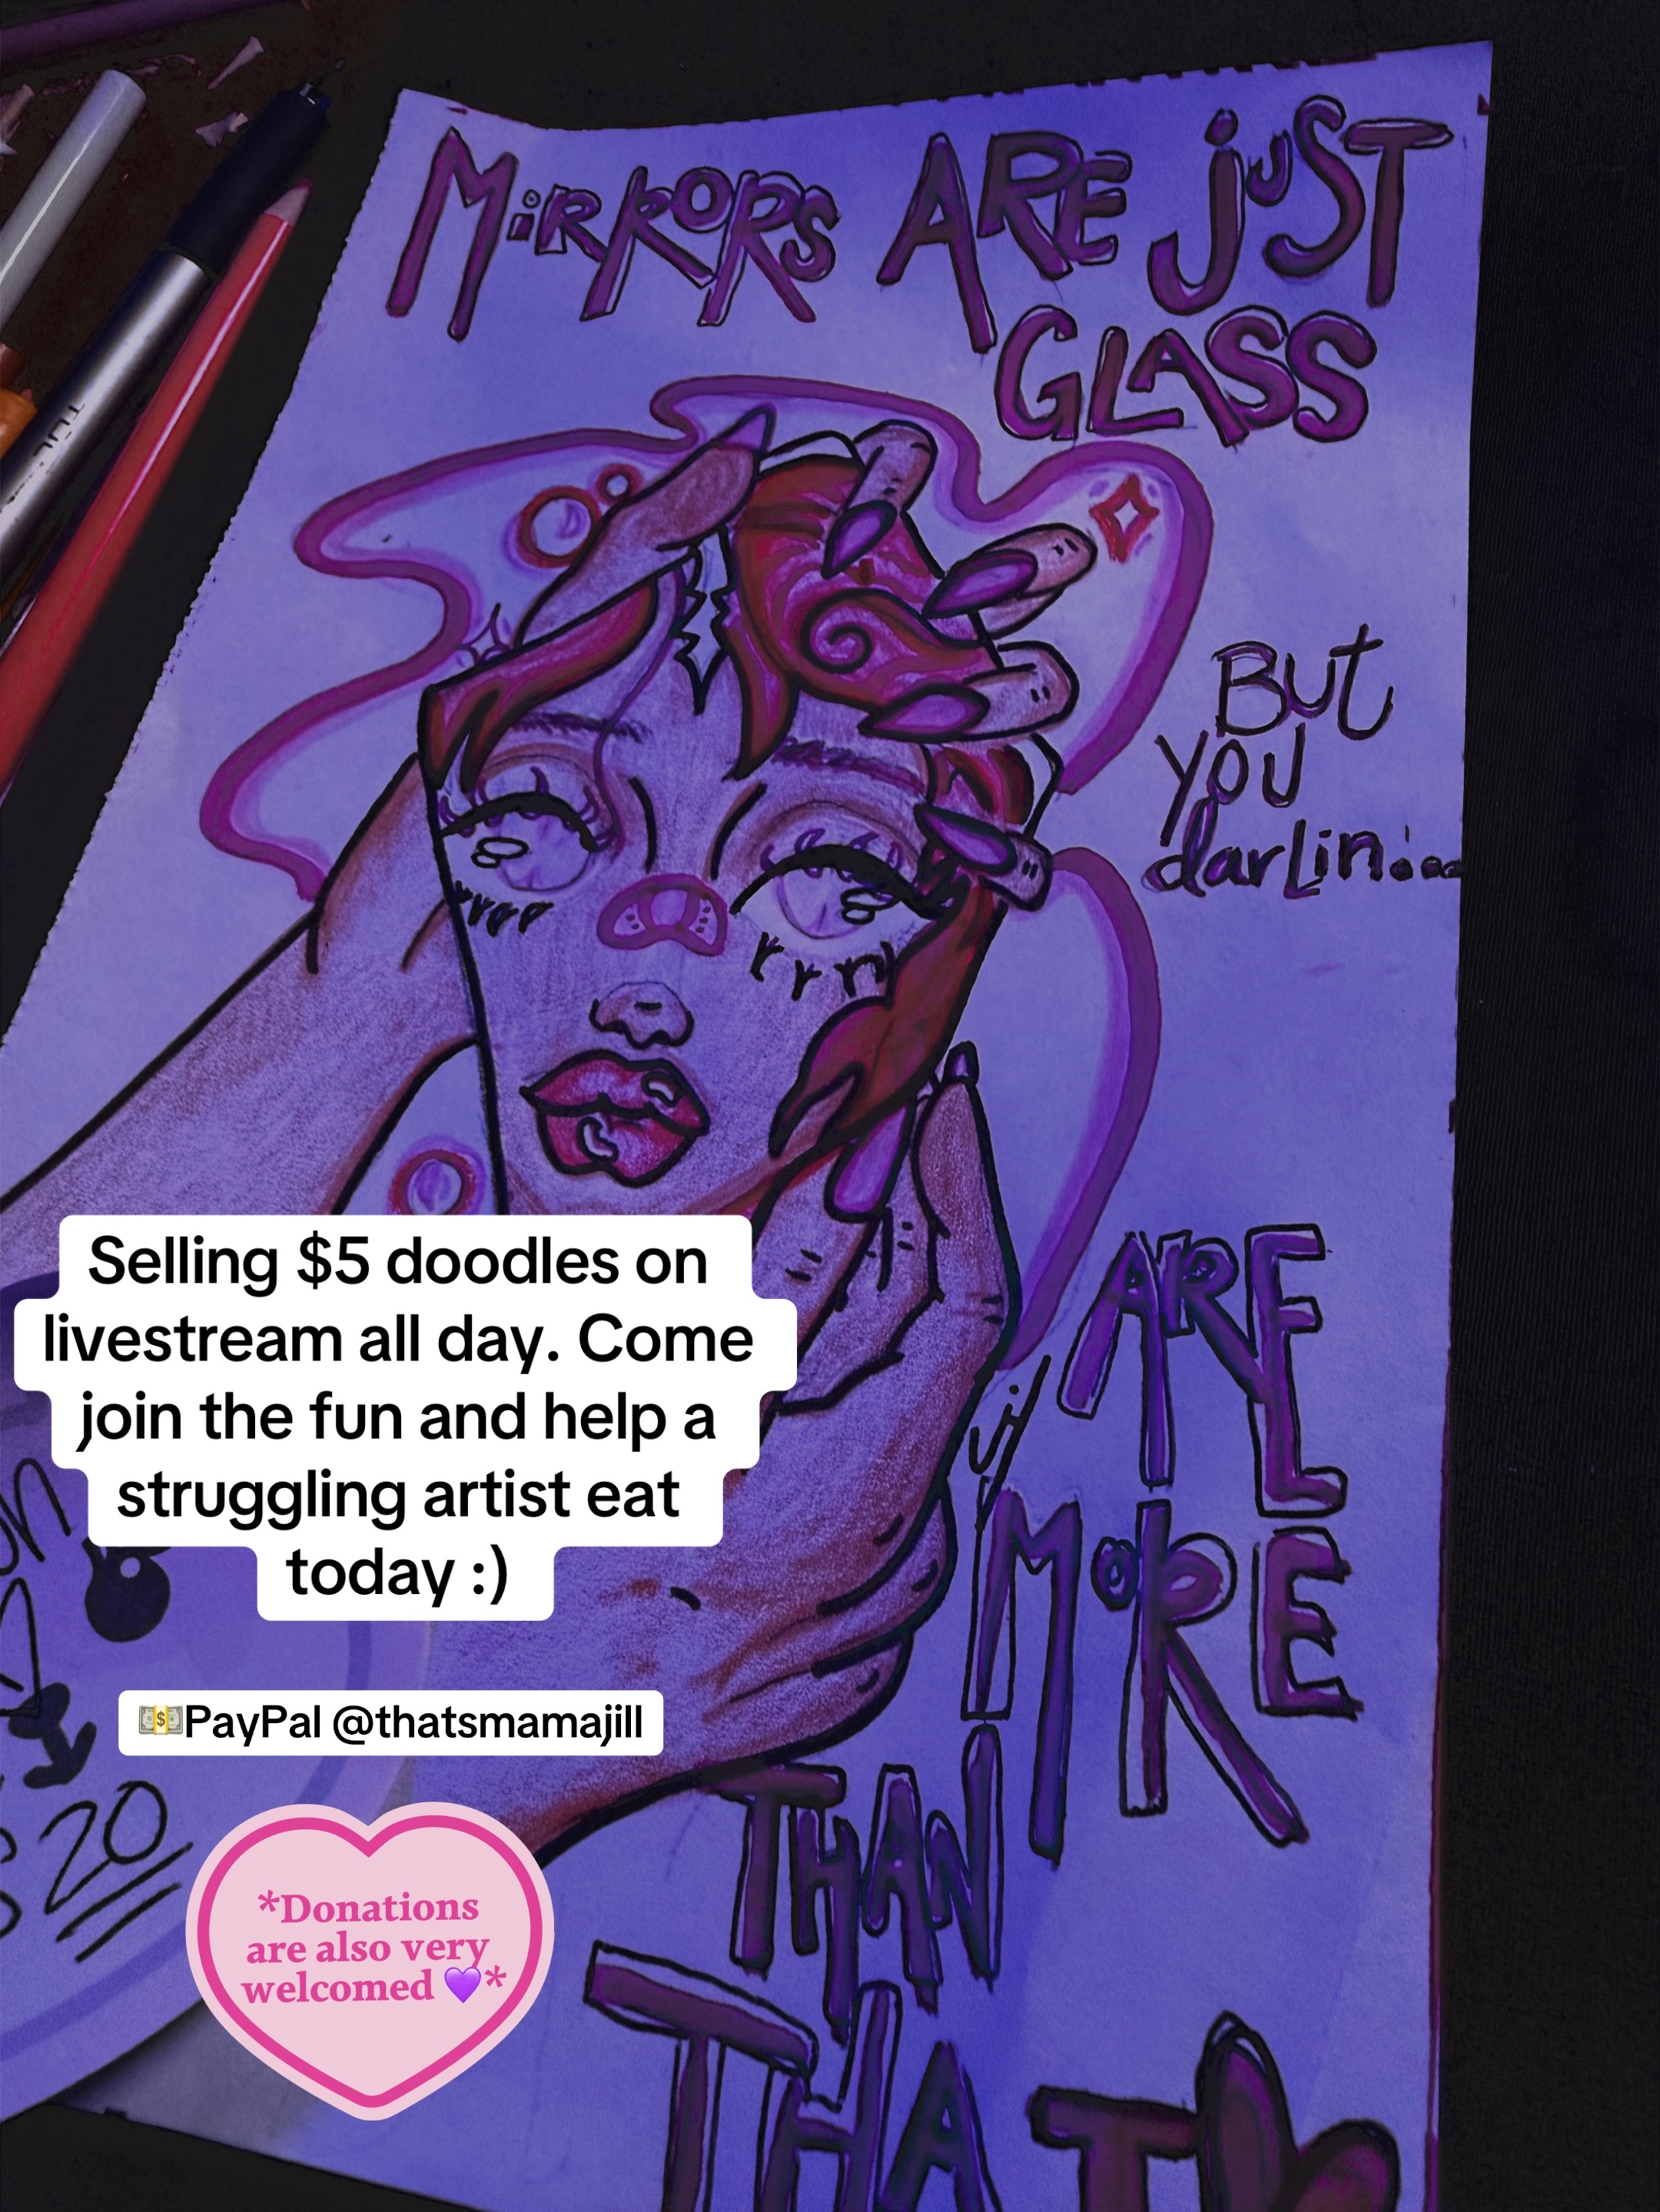 MiRRORS ARE juST
GLASS
BUt
YOU
darLin...
ARE
MORE
THAN
THAT
Selling $5 doodles on
livestream all day. Come
join the fun and help a
struggling artist eat
today :)
💵PayPal @thatsmamajill
20
*Donations
are also very
welcomed 💜*